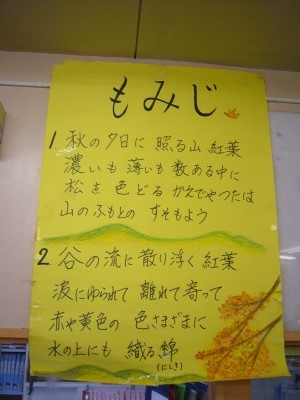 もみじ
1 秋の夕日に 照る山 紅葉
濃いも 薄いも 数ある中に
松を 色どる かえでやつたは
山のふもとの すそもよう
2 谷の流に 散り浮く 紅葉
波にゆられて 離れて 寄って
赤や黄色の 色さまざまに
水の上にも 織る 錦
(にしき)